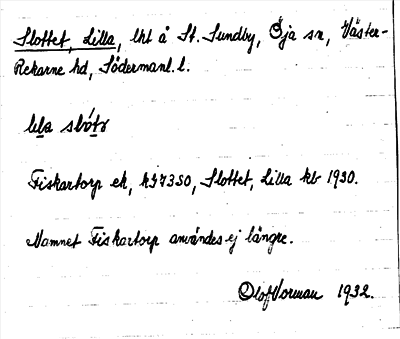 Slottet, Lilla, lht å St. Sundby, Öja sn, Väster-
Rekarne hd, Södermanl. l.
lıla slòtə
Fiskartorp ek, hJ7350, Slottet, Lilla kb 1930.
Namnet Fiskartorp användes ej längre.
Olof Norman 1932.